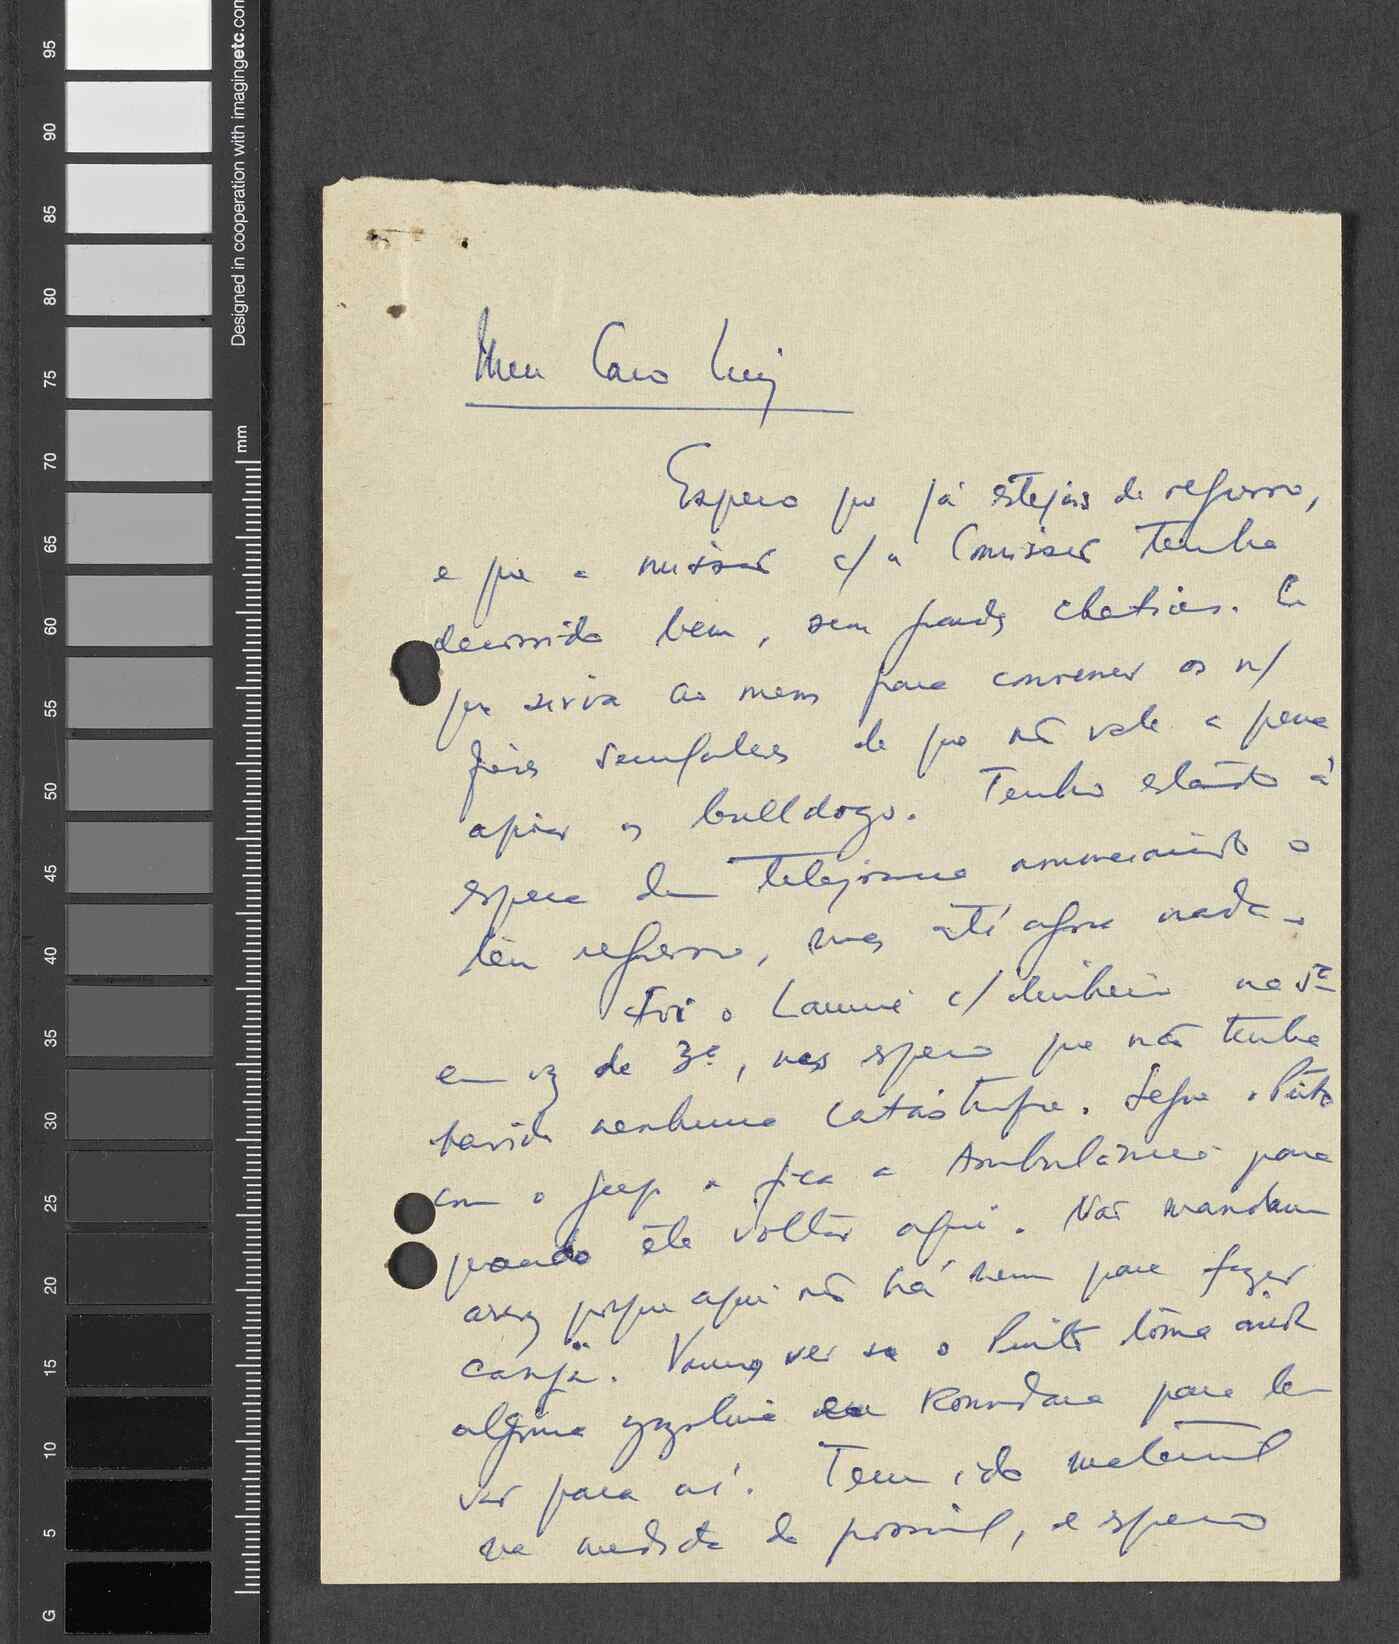 95
90
85
80
75
70
65
60
55
50
45
40
35
30
25
20
15
10
5
G
Designed in cooperation with imagingetc.com
mm
Meu Caro Luiz
Espero que já estejas de regresso,
e que a missão c/ a Comissão tenha
decorrido bem, sem grandes chatices. E
que sirva ao menos para convencer os n/
de que não vale a pena
apoiar os bulldogs. Tenho estado à
espera dum telegrama anunciando o
teu regresso, mas até agora nada.
Foi o c/ dinheiro na 5ª
em vez de 3ª, mas espero que não tenha
havido nenhuma catástrofe. Segue o Pinto
com o jeep e fica a Ambulância para
quando êle voltar aqui. Não mandam
arroz porque aqui não há nem para fazer
canja. Vamos ver se o Pinto toma
alguma gazolina em Koundara para le
var para aí. Tem ido material
na medida do possível, e espero